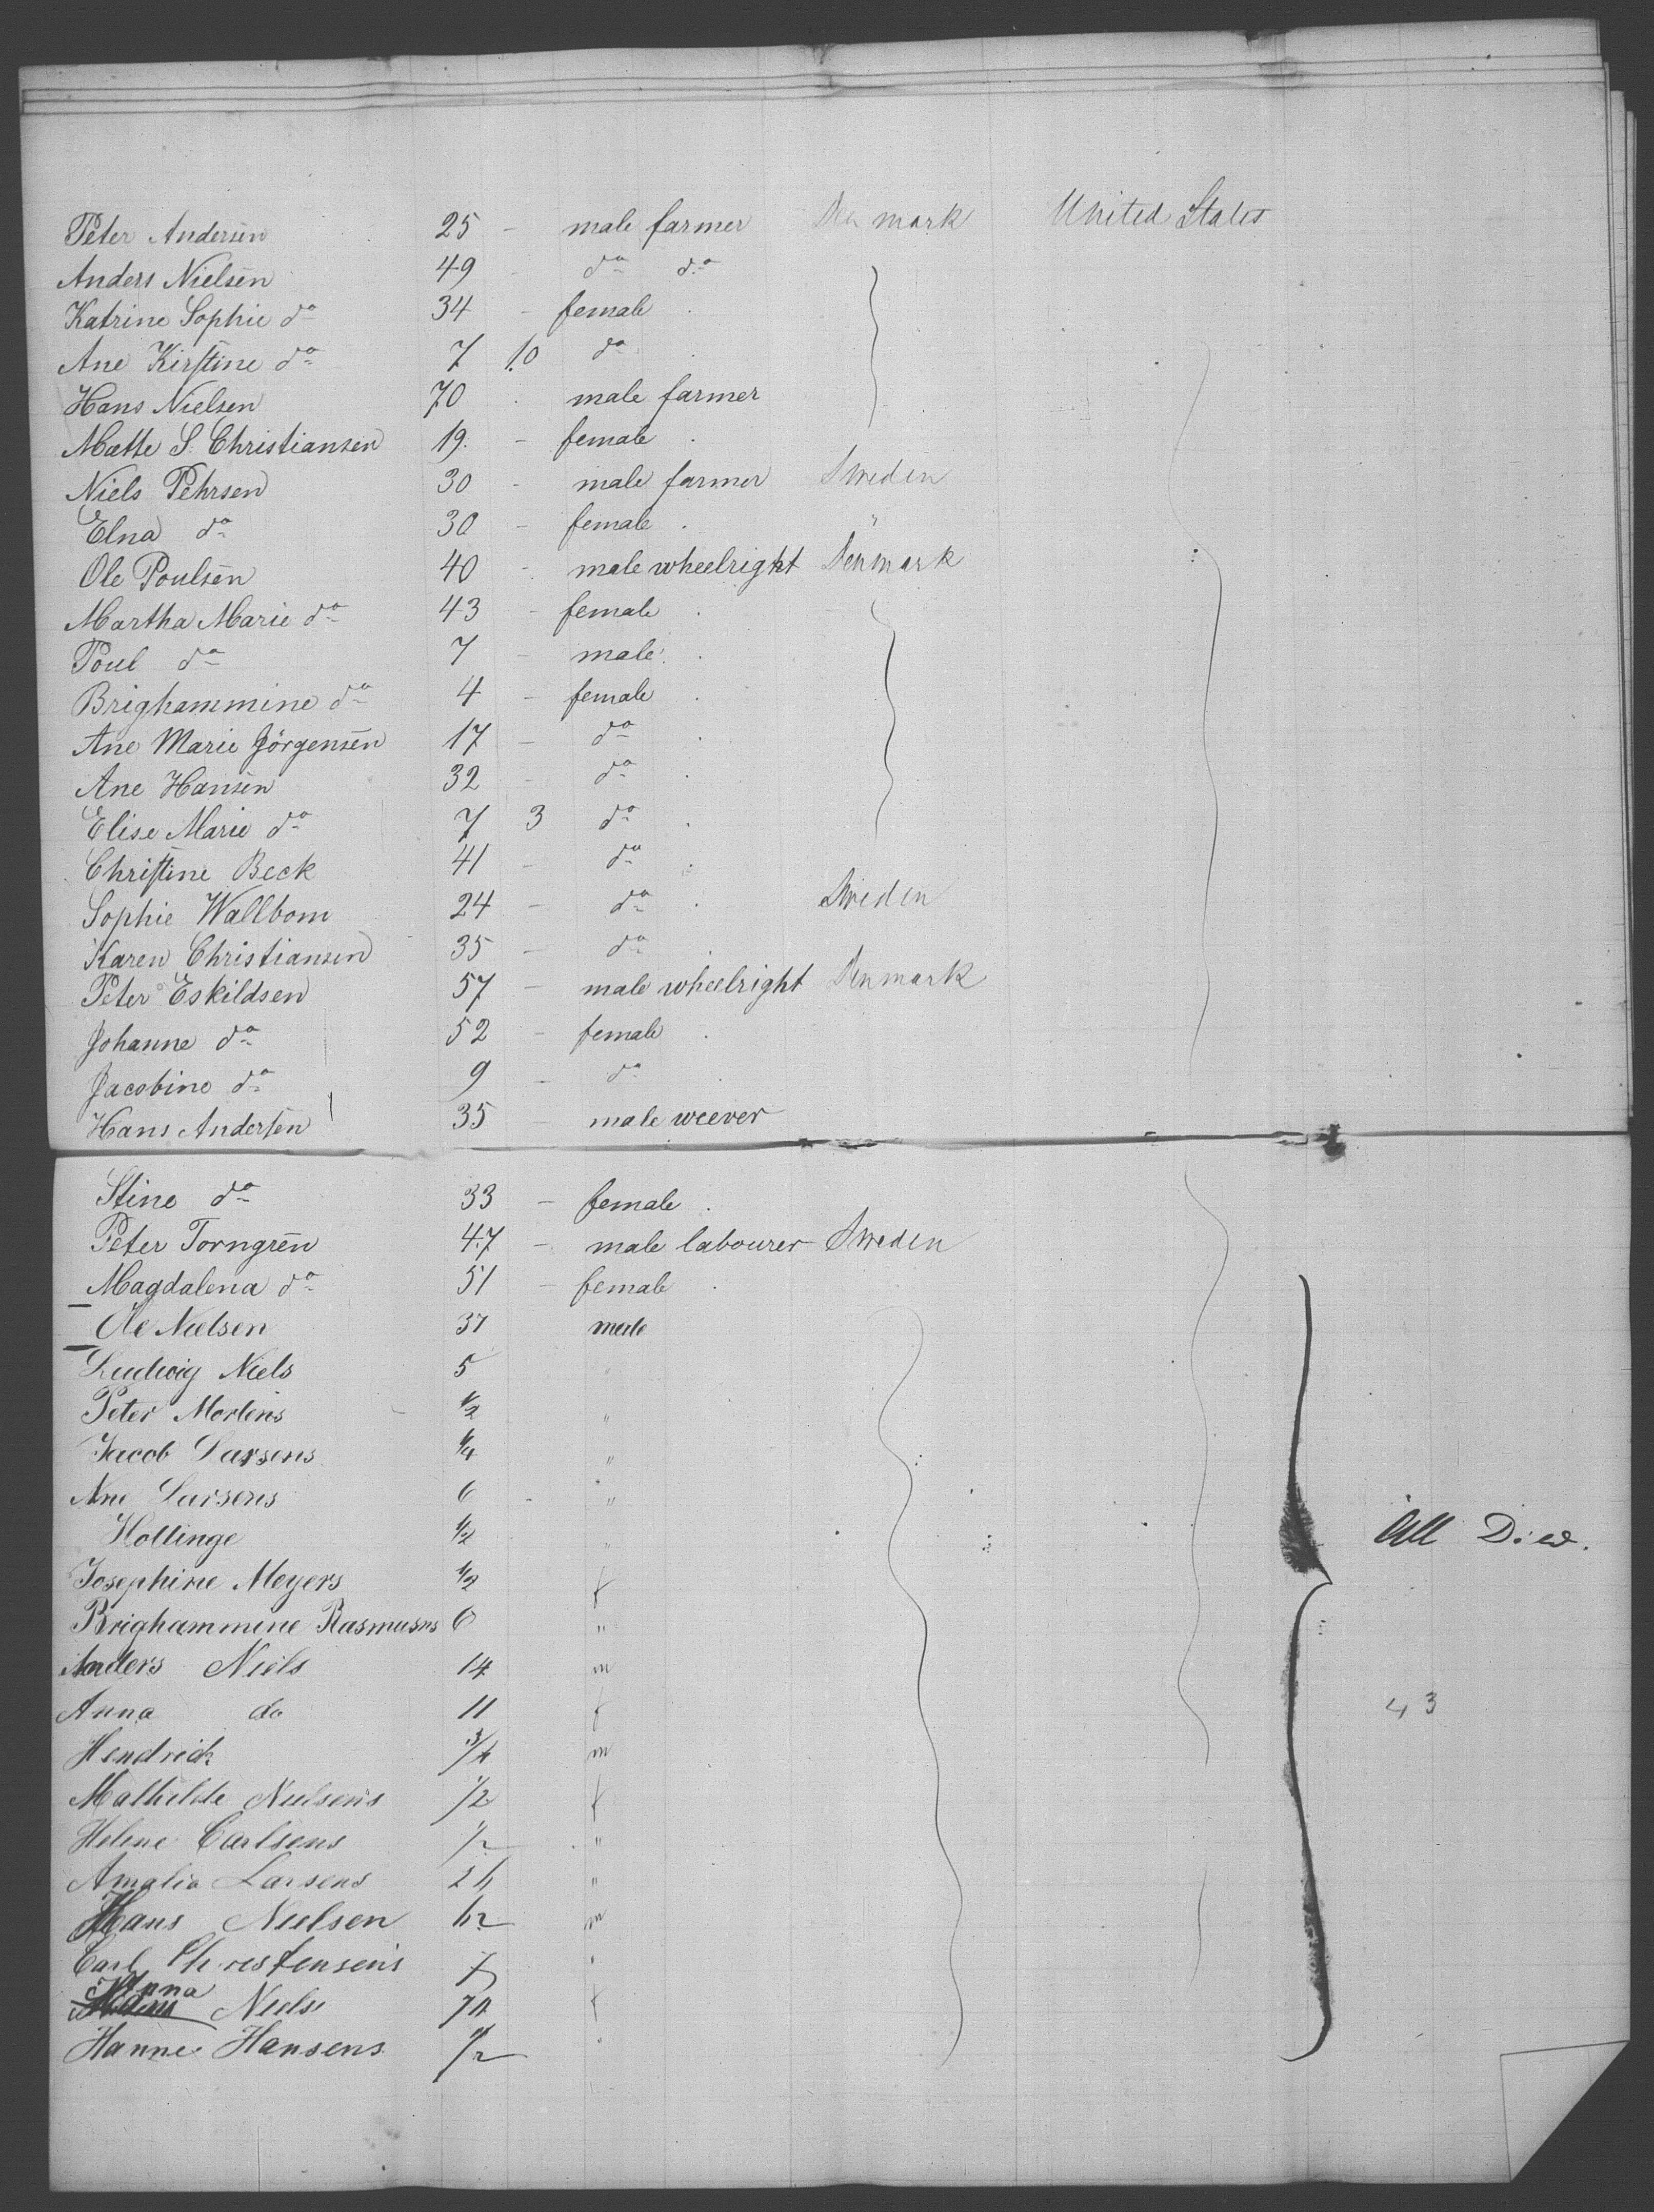 Peter Andersen 25 - male farmer Denmark United States
Anders Nielsen 49 - do do
Katrine Sophie do 34 - female
Ane Kirstine do 7 10 do
Hans Nielsen 70 male farmer
Mætte S. Christiansen 19. - female
Niels Pehrsen 30 - male farmer Sweden
Elna do 30 - female "
Ole Poulsen 40 - male wheelright Denmark
Martha Marie do 43 - female
Poul do 7 - male
Brighammine do 4 - female
Ane Marie Jörgensen 17 - do
Ane Hansen 32 - do
Elise Marie do 7 3 do
Christine Beck 41 - do
Sophie Wallbom 24 - do Sweden
Karen Christiansen 35 - do
Peter Eskildsen 57 - male wheelright Denmark
Johanne do 52 - female
Jacobine do 9 - do
Hans Andersen 35 male weever
Stine do 33 - female
Peter Torngren 47 - male labourer Sweden
Magdalena do 51 - female
Ole Nielsen 37 male
Ludwig Niels 5
Peter Mortens 1/2 "
Jacob Larsens 1/4 "
Ane Larsens 6 "
Hollinge 1/2 "
All Died.
Josephine Meyers 1/2 f
Brighammine Rasmusns 6 "
Anders Niels 14 m
Anna do 11 f
43
Hendrick 3/4 m
Mathilde Nielsens 1/2 f
Helene Carlsens 1/2 "
Amalia Larsens "
Hans Nielsen m
Carl Christensens
Anna Niels f
Hanne Hansens 1/2